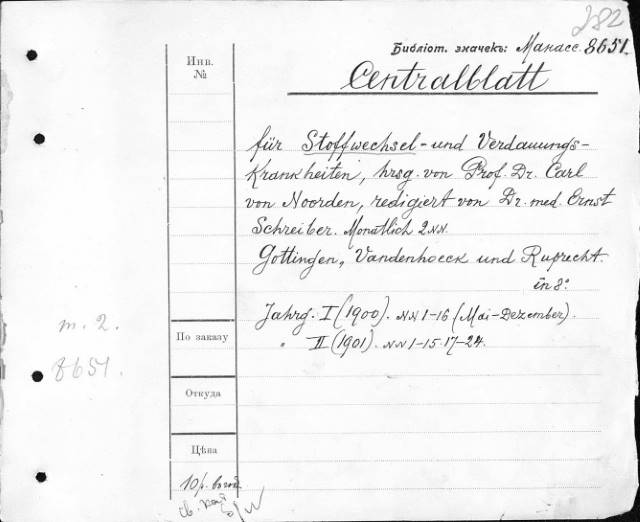 282
Библіот. значекъ: Манасс. 8651.
Инв.
№
Centralblatt
für Stoffwechsel- und Verdauungs-
Krankheiten, hrsg. von Prof. Dr. Carl
von Noorden, redigiert von Dr. med. Ernst
Schreiber. Monatlich 2 NN.
Gottingen, Vandenhoeck und Ruprecht.
in 8°.
Jahrg. I (1900). NN 1-16 (Mai-Dezember).
" II (1901). NN 1-15. 17-24.
т. 2.
8651.
По заказу
Откуда
Цѣна
10 р.